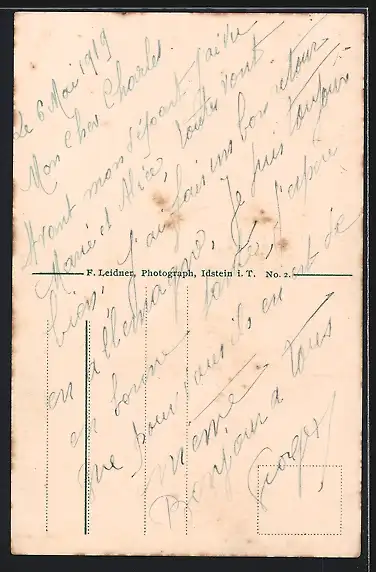 Le 6 Mai 1919
Mon Cher Charles
Avant mon départ j'ai vu
Marie et Alice, toutes vont
bien, j'ai fais un bon retour
en allemagne, Je suis toujours
en bonne santé, j'espère
que pour vous ils en est de
meme
Bonjour a tous
Georges
F. Leidner, Photograph, Idstein i. T. No. 2.